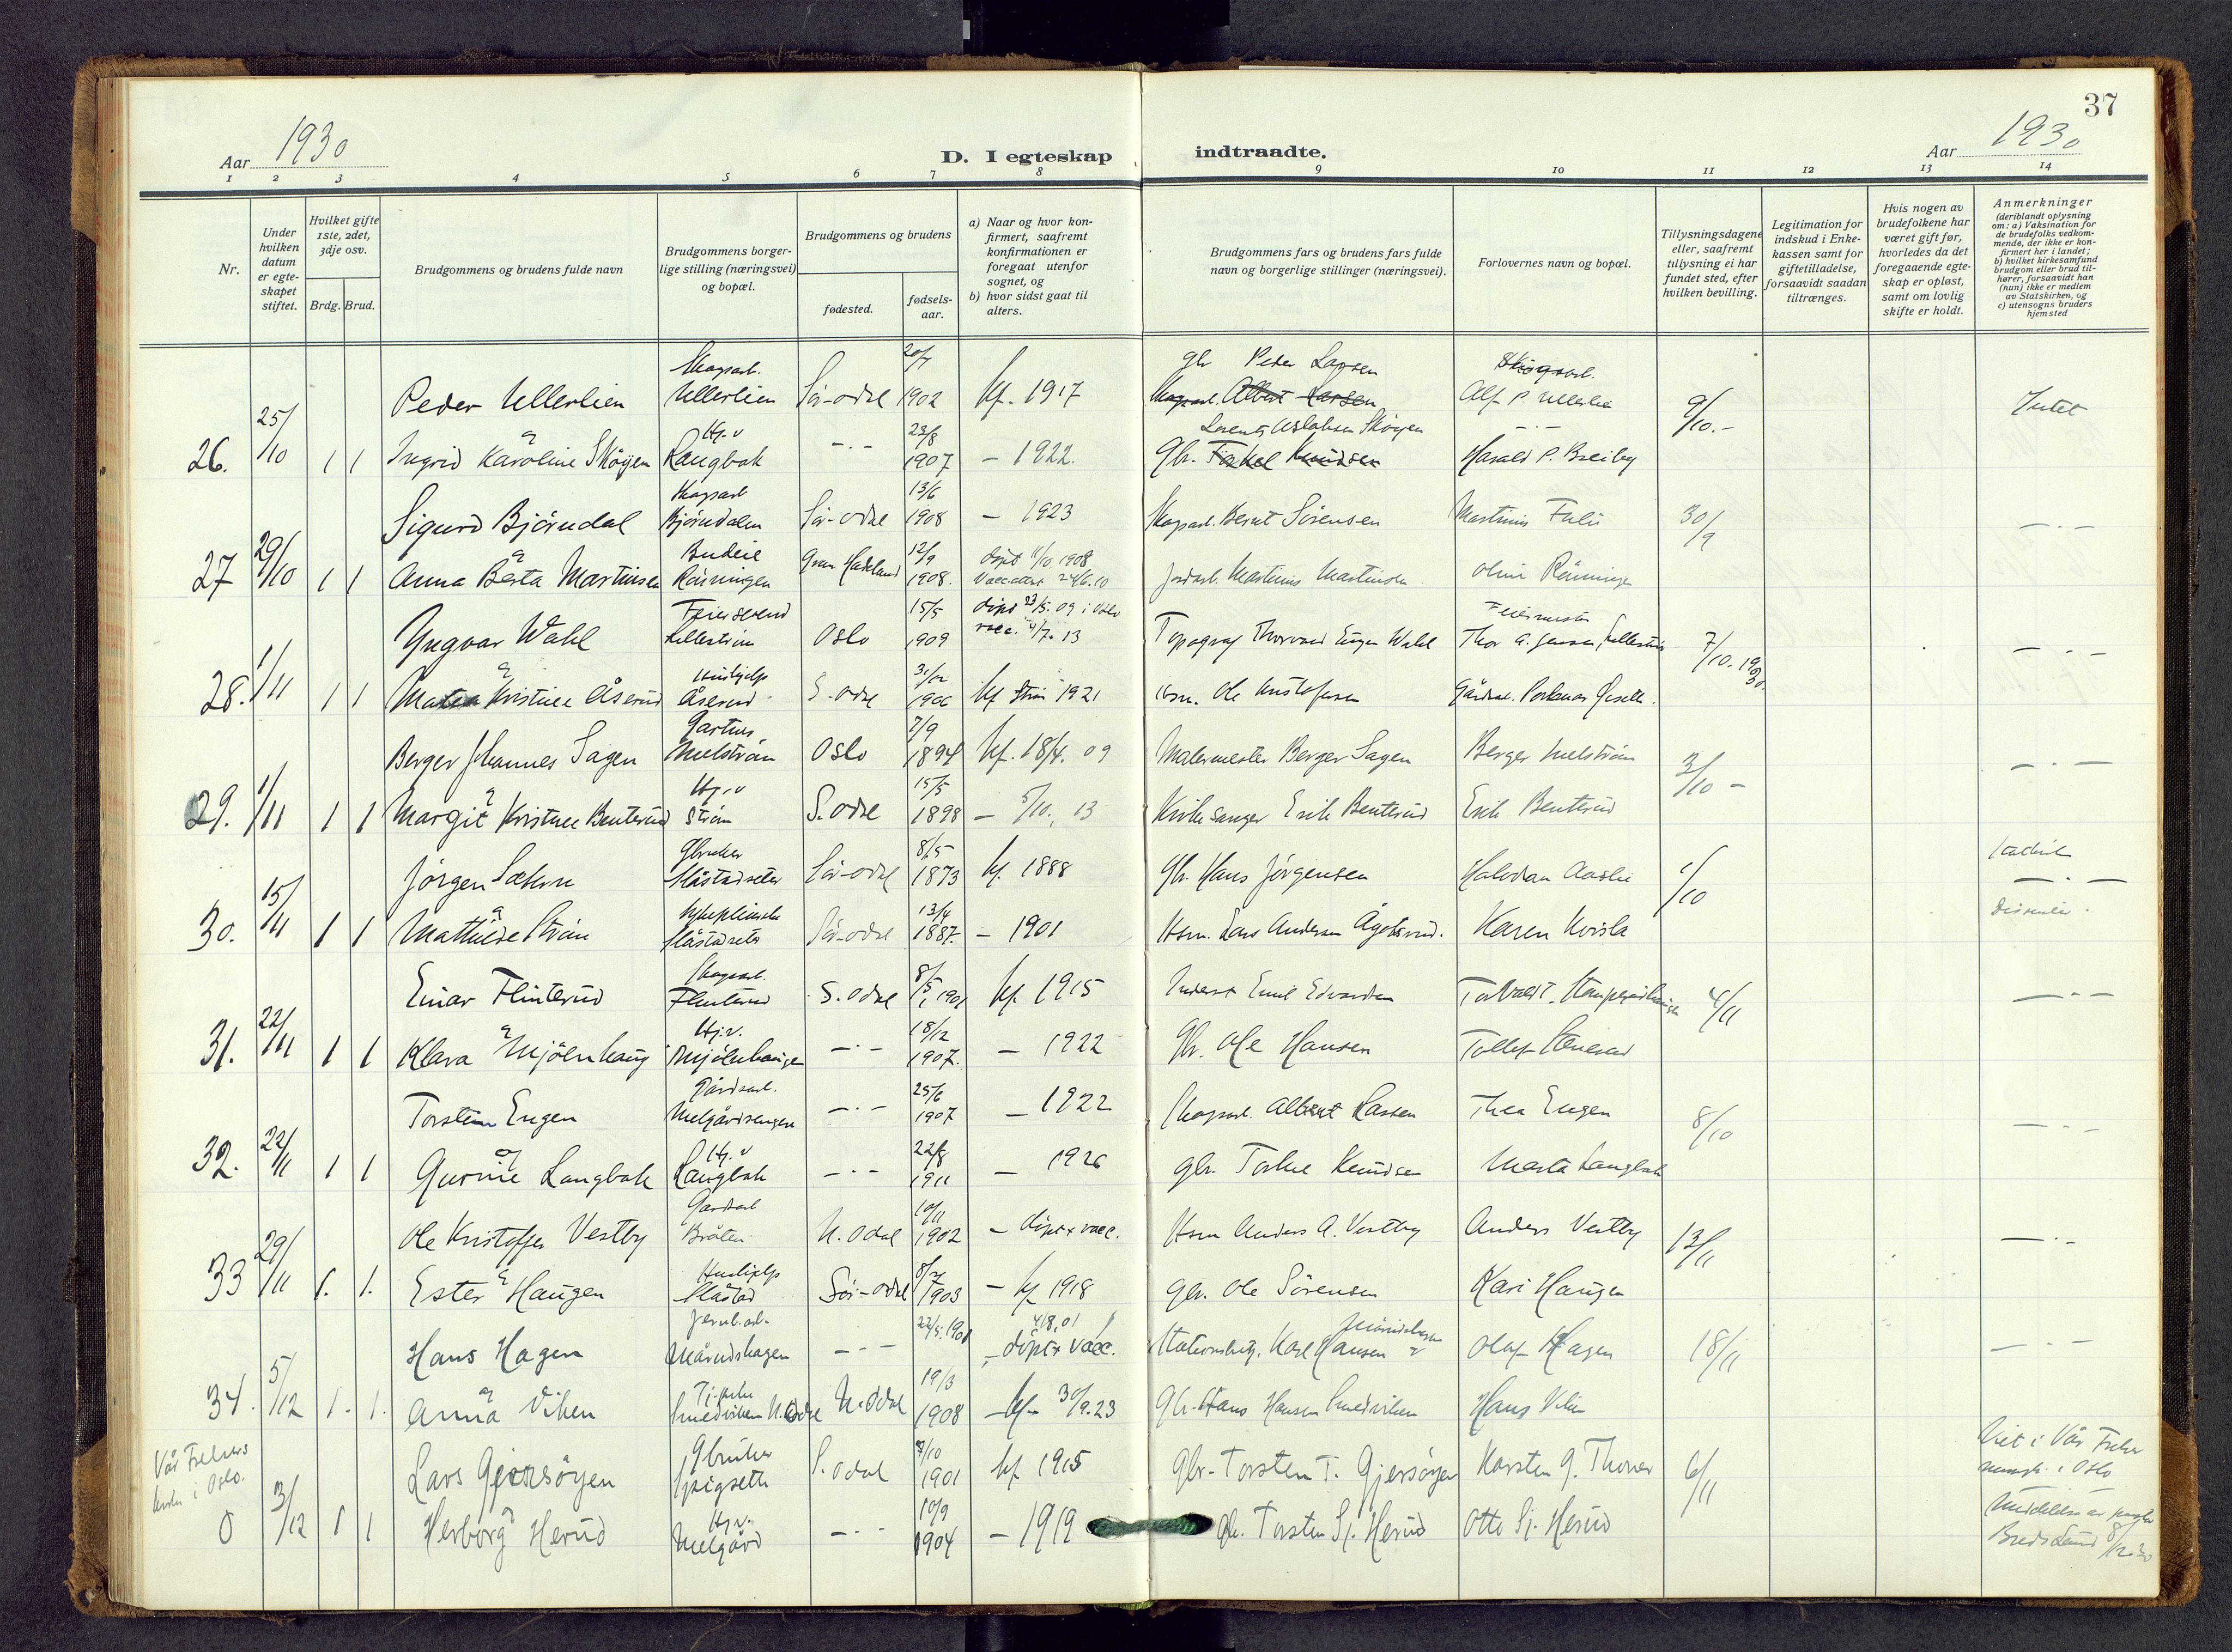 37
Aar 1930
D. I egteskap indtraadte.
Aar 1930
1 2 3 4 5 6 7 8 9 10 11 12 13 14
Nr.
Under hvilken datum er egteskapet stiftet.
Hvilket gifte 1ste, 2det, 3dje osv.
Brdg. Brud.
Brudgommens og brudens fulde navn
Brudgommens borgerlige stilling (næringsvei) og bopæl.
Brudgommens og brudens
fødested.
fødselsaar.
a) Naar og hvor konfirmert, saafremt konfirmationen er foregaat utenfor sognet, og
b) hvor sidst gaat til alters.
Brudgommens fars og brudens fars fulde navn og borgerlige stillinger (næringsvei).
Forlovernes navn og bopæl.
Tillysningsdagene eller, saafremt tillysning ei har fundet sted, efter hvilken bevilling.
Legitimation for indskud i Enkekassen samt for giftetilladelse, forsaavidt saadan tiltrænges.
Hvis nogen av brudefolkene har været gift før, hvorledes da det foregaaende egteskap er opløst, samt om lovlig skifte er holdt.
Anmerkninger (deriblandt oplysning om: a) Vaksination for de brudefolks vedkommende, der ikke er konfirmert her i landet; b) hvilket kirkesamfund brudgom eller brud tilhører, forsaavidt han (hun) ikke er medlem av Statskirken, og c) utensogns bruders hjemsted
Skogsarb. 20/7 gbr Peder Larsen Skogsarb.
Peder Ullerlien Ullerlien Sör-odal 1902 kf. 1917 Skogsarb. Albert Larsen Alf P. Ullerlien 9/10.- Intet
25/10 & Hj.v 23/8 Lorents Aslaksen Skögen
26. 1 1 Ingrid Karoline Skögen Langbak -.- 1907 - 1922. Gbr. Torkel Knudsen Harald P. Breiby
Skogsarb 13/6
Sigurd Björndal Björndalen Sör-odal 1908 - 1923 Skogsarb. Bernt Sörensen Martinus Fuli 30/9 -.-
29/10 & Budeie 12/9 döpt 11/10 1908
27 1 1 Anna Berta Martinsen Rönningen Gran Hadeland 1908. vaccinert 24/6.10 Jordarb. Martinus Martinsen Oline Rönningen
Feiersvend 15/5 döpt 23/5.09 i Oslo Feiermester
Yngvar Wahl Lilleström Oslo 1909 vacc. 4/7. 13 Topograf Thorvald Eugen Wahl Thor A. Jensen, Lilleström 7/10. 1930. -.-
1/11 & Hushjelp
28. 1 1 Kristine Åserud Åserud S-odal 1906 kf Ström 1921 Hsm. Ole Kristofersen
Gartner 7/9
Berger Johannes Sagen Mulström Oslo 1894 kf. 18/4. 09 Malermester Berger Sagen Berger Mulström 3/10 - -.-
1/11 & Hj.v 15/5
29. 1 1 Margit Kristine Benterud Ström S. odal 1898 - 5/10. 13 Kirkesanger Erik Benterud Erik Benterud
Gbruker 8/5
Jörgen Slåstadseter Sör-odal 1873 kf. 1888 Gbr. Hans Jörgensen Halvdan Aaslie 1/10 -.-
15/11 & 13/4 dissenter.
30. 1 1 Mathilde Ström Slåstadseter Sör-odal 1887. - 1901 Hsm. Lars Andersen Ågotsrud. Karen Kvisla
Skogsarb. 8/5
Einar Flinterud Flinterud S. odal 1901 kf. 1915 Inderst Emil Edvardsen 4/11 -.-
22/11 & Hj.v. 18/12
31. 1 1 Klara Mjölnhaug Mjölnhaugen -.- 1907. - 1922 Gbr. Ole Hansen Tollef Stenerud
Gårdsarb. 25/6
Torstein Engen Melgårdsengen -.- 1907 - 1922 Skogsarb. Albert Larsen Thea Engen 8/10 -.-
22/11 & Hj.v 22/8
32. 1 1 Gunnie Langbak Langbak -.- 1911 - 1926 Gbr. Torkel Knudsen Marta Langbak
Gårdsarb 10/11
Ole Kristoffer Vestby Bråten N. Odal 1902 - döpt & vacc. Hsm Anders A. Vestby Anders Vestby 13/11 -.-
29/11 & Hushjelp
33 1. 1. Ester Haugen Slåstad Sör-odal 1903 - kf 1918 Gbr. Ole Sörensen Kari Haugen
Jernb.arb. 22/5.1901 4/8.01 Mårudshagen
Hans Hagen Mårudshagen -.- - döpt & vacc. Karl Hansen Olaf Hagen 18/11 -.-
5/12 & 19/3
34. 1. 1. Anna Viken Smedviken N. Odal N. Odal 1908 - kf. 30/9.23 Gbr. Hans Hansen Smedviken Hans Viken
Vår Frelsers kirke i Oslo. Gbruker 7/10 Viet i Vår Frelsers menigh. i Oslo
Lars Gjersöyen S. odal 1901 kf 1915 Gbr. Torsten T. Gjersöyen Karsten G. Thoner 6/11
3/12 & Hj.v. 10/9 Meddelelse av pastor
0 1 1 Herborg Herud Melgård -.- 1904 - 1919 Gbr. Torsten Sj. Herud Otto Sj. Herud 8/12.30